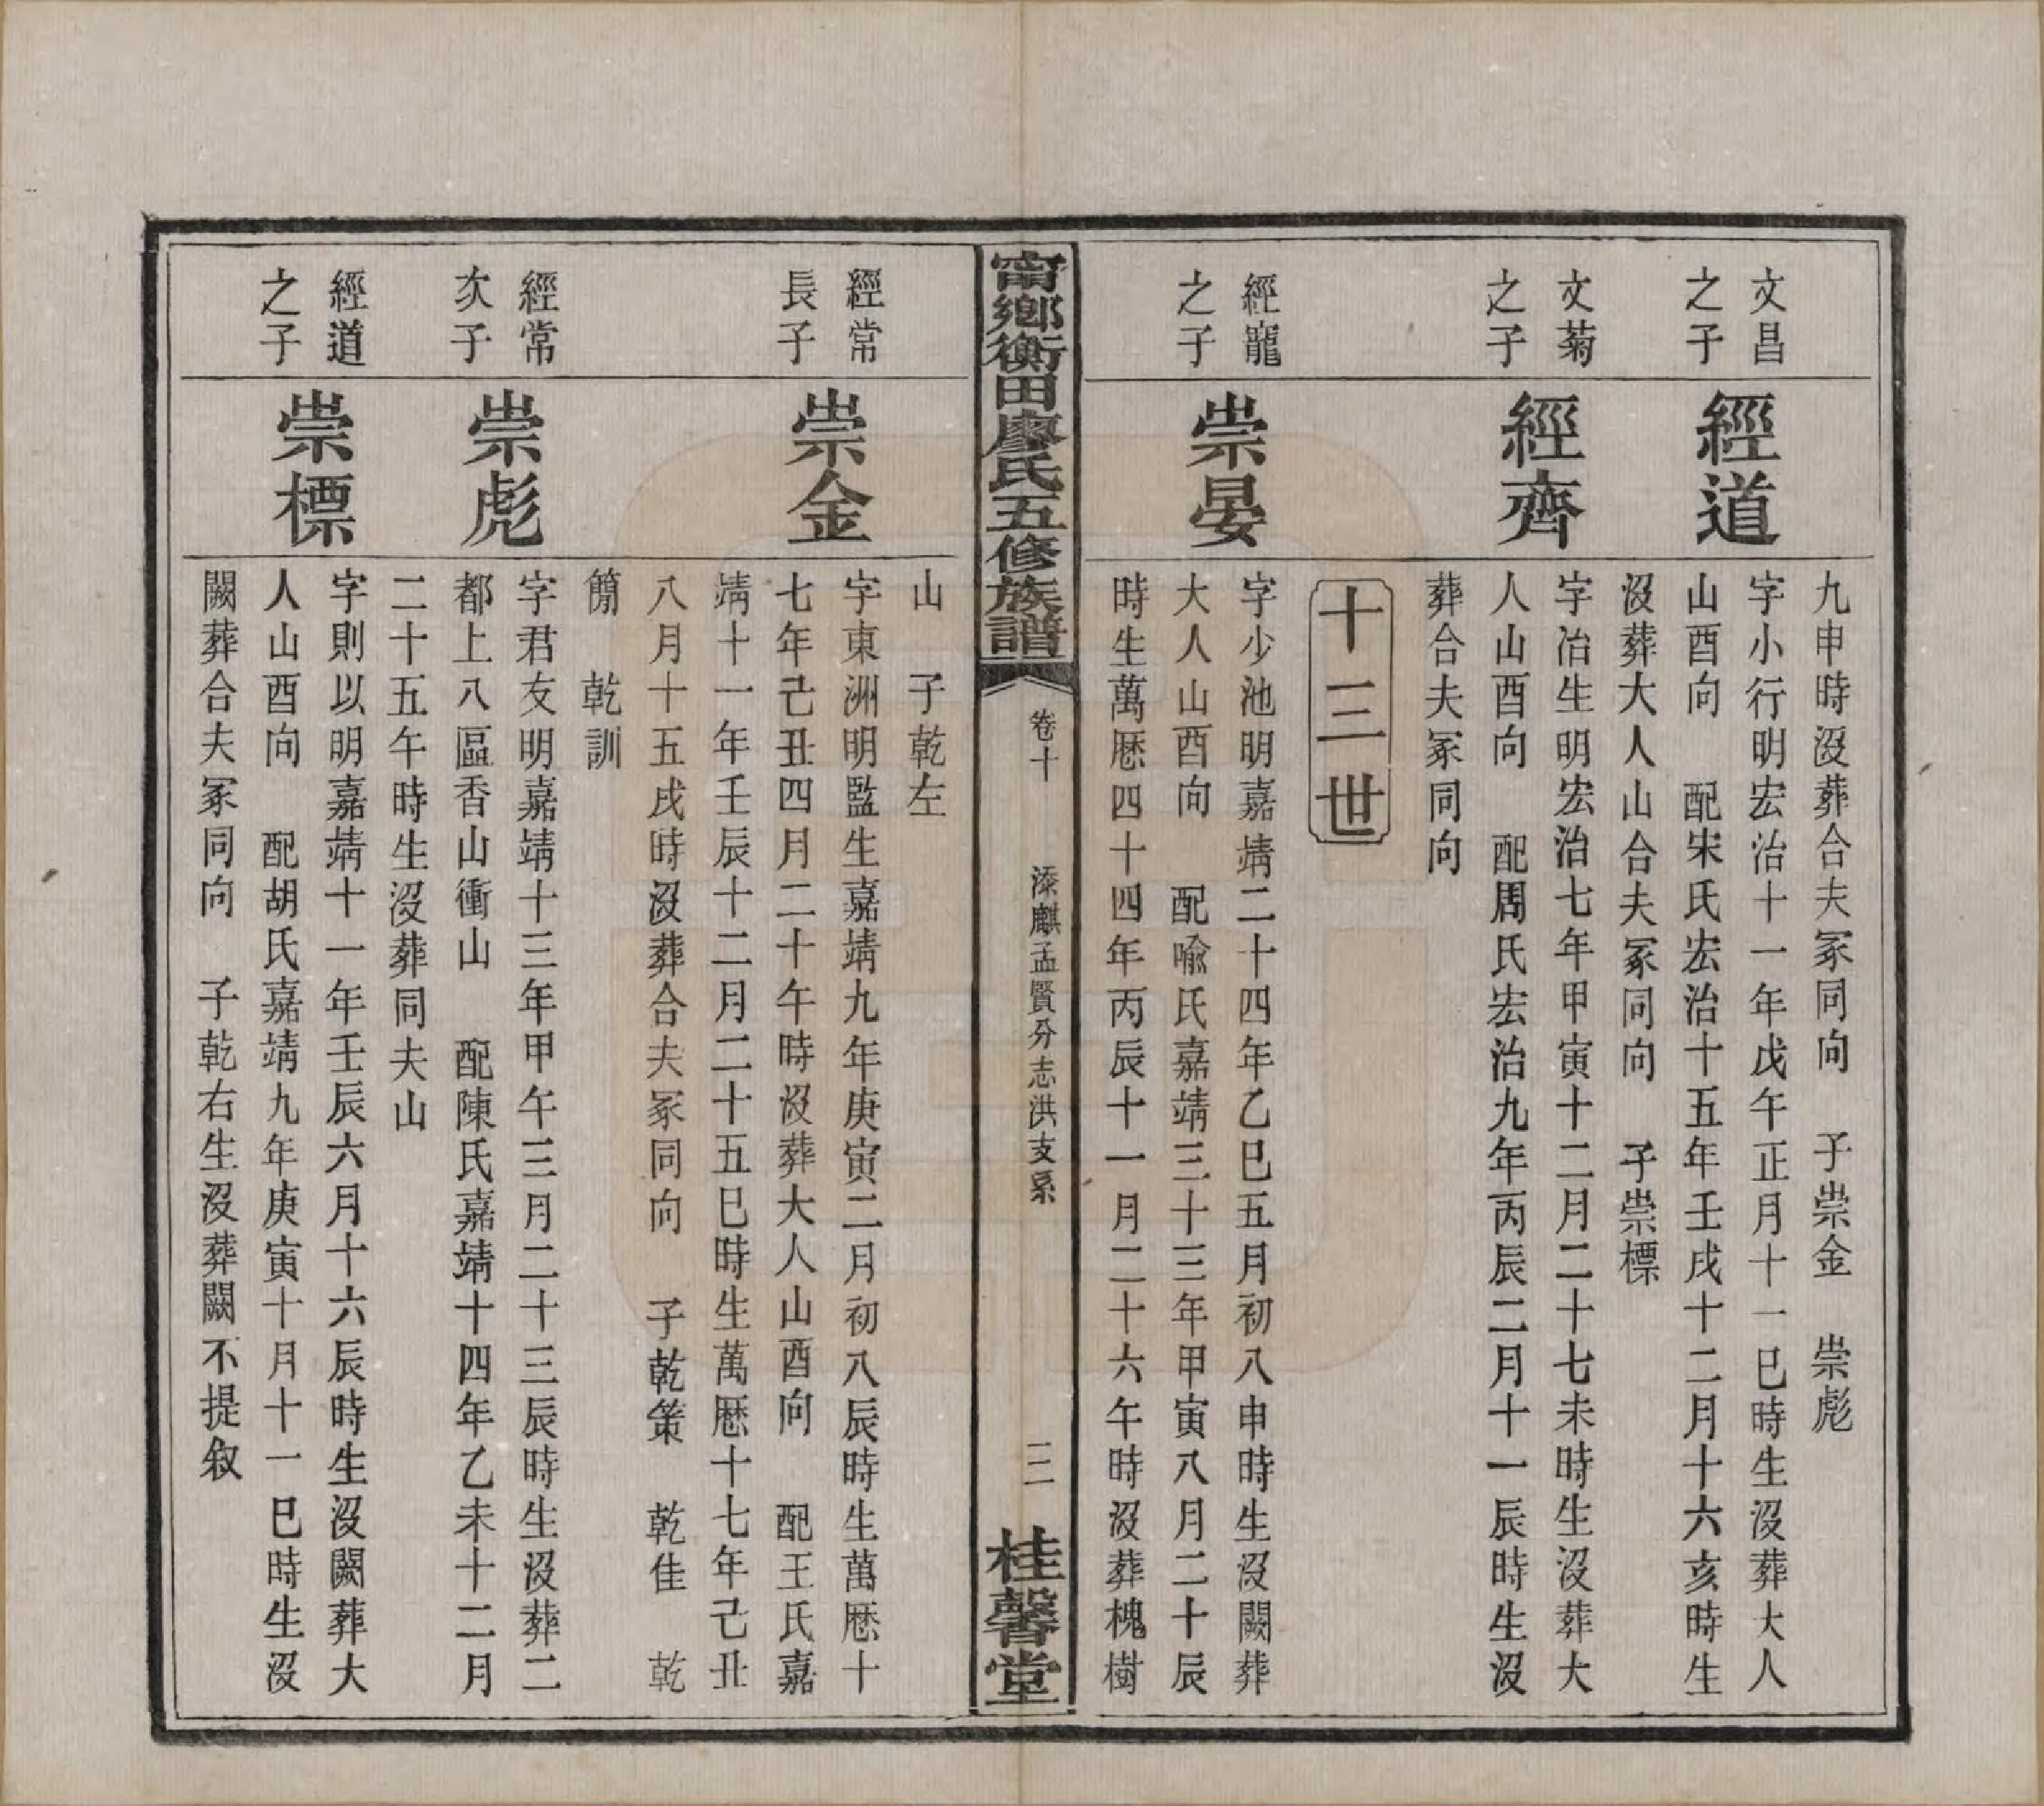 九申時沒葬合夫冢同向　子崇金　崇彪
文昌
之子
經道
字小行明宏治十一年戊午正月十一巳時生沒葬大人
山酉向　配宋氏宏治十五年壬戌十二月十六亥時生
沒葬大人山合夫冢同向　子崇標
文菊
之子
經齊
字治生明宏治七年甲寅十二月二十七未時生沒葬大
人山酉向　配周氏宏治九年丙辰二月十一辰時生沒
葬合夫冢同向
十三世
經寵
之子
崇晏
字少池明嘉靖二十四年乙巳五月初八申時生沒闕葬
大人山酉向　配喩氏嘉靖三十三年甲寅八月二十辰
時生萬厯四十四年丙辰十一月二十六午時沒葬槐樹
甯鄉衡田廖氏五修族譜
卷十
添麒孟賢分志洪支系
二
桂馨堂
山　子乾左
經常
長子
崇金
字東洲明監生嘉靖九年庚寅二月初八辰時生萬厯十
七年己丑四月二十午時沒葬大人山酉向　配王氏嘉
靖十一年壬辰十二月二十五巳時生萬厯十七年己丑
八月十五戌時沒葬合夫冢同向　子乾策　乾佳　乾
簡　乾訓
經常
次子
崇彪
字君友明嘉靖十三年甲午三月二十三辰時生沒葬二
都上八區香山衝山　配陳氏嘉靖十四年乙未十二月
二十五午時生沒葬同夫山
經道
之子
崇標
字則以明嘉靖十一年壬辰六月十六辰時生沒闕葬大
人山酉向　配胡氏嘉靖九年庚寅十月十一巳時生沒
闕葬合夫冢同向　子乾右生沒葬闕不提叙